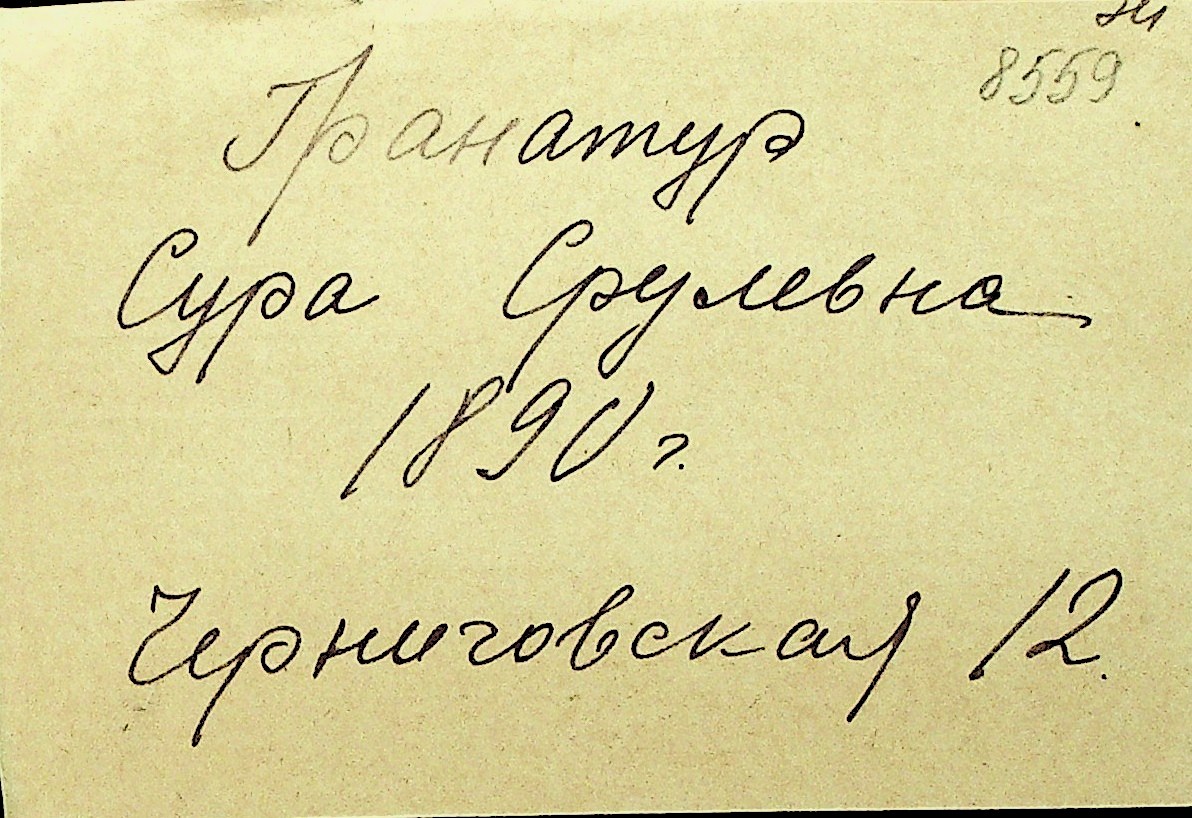 8559
Гранатур
Сура Срулевна
1890 г.
Черниговская 12.